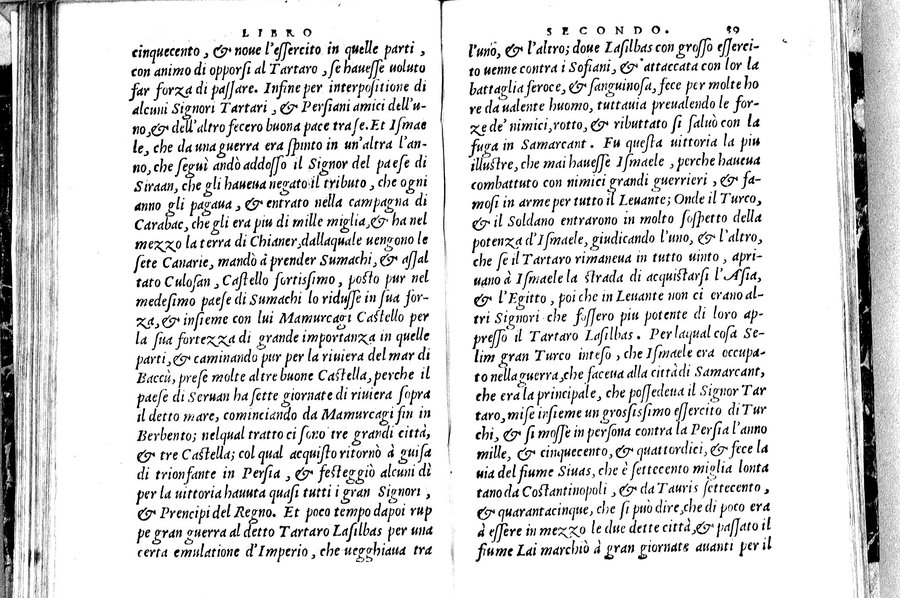 LIBRO
cinquecento, & noue l'essercito in quelle parti,
con animo di opporsi al Tartaro, se hauesse uoluto
far forza di passare. Infine per interpositione di
alcuni Signori Tartari, & Persiani amici dell'u-
no, & dell'altro fecero buona pace tra se. Et Ismae
le, che da una guerra era spinto in un'altra l'an-
no, che seguì andò addosso il Signor del paese di
Siraan, che gli haueua negato il tributo, che ogni
anno gli pagaua, & entrato nella campagna di
Carabac, che gli era piu di mille miglia, & ha nel
mezzo la terra di Chianer, dallaquale uengono le
sete Canarie, mandò à prender Sumachi, & assal
tato Culosan, Castello fortissimo, posto pur nel
medesimo paese di Sumachi lo ridusse in sua for-
za, & insieme con lui Mamurcagi Castello per
la sua fortezza di grande importanza in quelle
parti, & caminando pur per la riuiera del mar di
Baccù, prese molte altre buone Castella, perche il
paese di Seruan ha sette giornate di riuiera sopra
il detto mare, cominciando da Mamurcagi fin in
Berbento; nelqual tratto ci sono tre grandi città,
& tre Castella; col qual acquisto ritornò à guisa
di trionfante in Persia, & festeggiò alcuni dì
per la uittoria hauuta quasi tutti i gran Signori,
& Prencipi del Regno. Et poco tempo dapoi rup
pe gran guerra al detto Tartaro Lasilbas per una
certa emulatione d'Imperio, che uegghiaua tra
SECONDO. 59
l'uno, & l'altro; doue Lasilbas con grosso esserci-
to uenne contra i Sofiani, & attaccata con lor la
battaglia feroce, & sanguinosa, fece per molte ho
re da ualente huomo, tuttauia preualendo le for-
ze de' nimici, rotto, & ributtato si saluò con la
fuga in Samarcant. Fu questa uittoria la piu
illustre, che mai hauesse Ismaele, perche haueua
combattuto con nimici grandi guerrieri, & fa-
mosi in arme per tutto il Leuante; Onde il Turco,
& il Soldano entrarono in molto sospetto della
potenza d'Ismaele, giudicando l'uno, & l'altro,
che se il Tartaro rimaneua in tutto uinto, apri-
uano à Ismaele la strada di acquistarsi l'Asia,
& l'Egitto, poi che in Leuante non ci erano al-
tri Signori che fossero piu potente di loro ap-
presso il Tartaro Lasilbas. Per laqual cosa Se-
lim gran Turco inteso, che Ismaele era occupa-
to nella guerra, che faceua alla città di Samarcant,
che era la principale, che possedeua il Signor Tar
taro, mise insieme un grossissimo essercito di Tur
chi, & si mosse in persona contra la Persia l'anno
mille, & cinquecento, & quattordici, & fece la
uia del fiume Siuas, che è settecento miglia lonta
tano da Costantinopoli, & da Tauris settecento,
& quarantacinque, che si può dire, che di poco era
à essere in mezzo le due dette città, & passato il
fiume Lai marchiò à gran giornate auanti per il